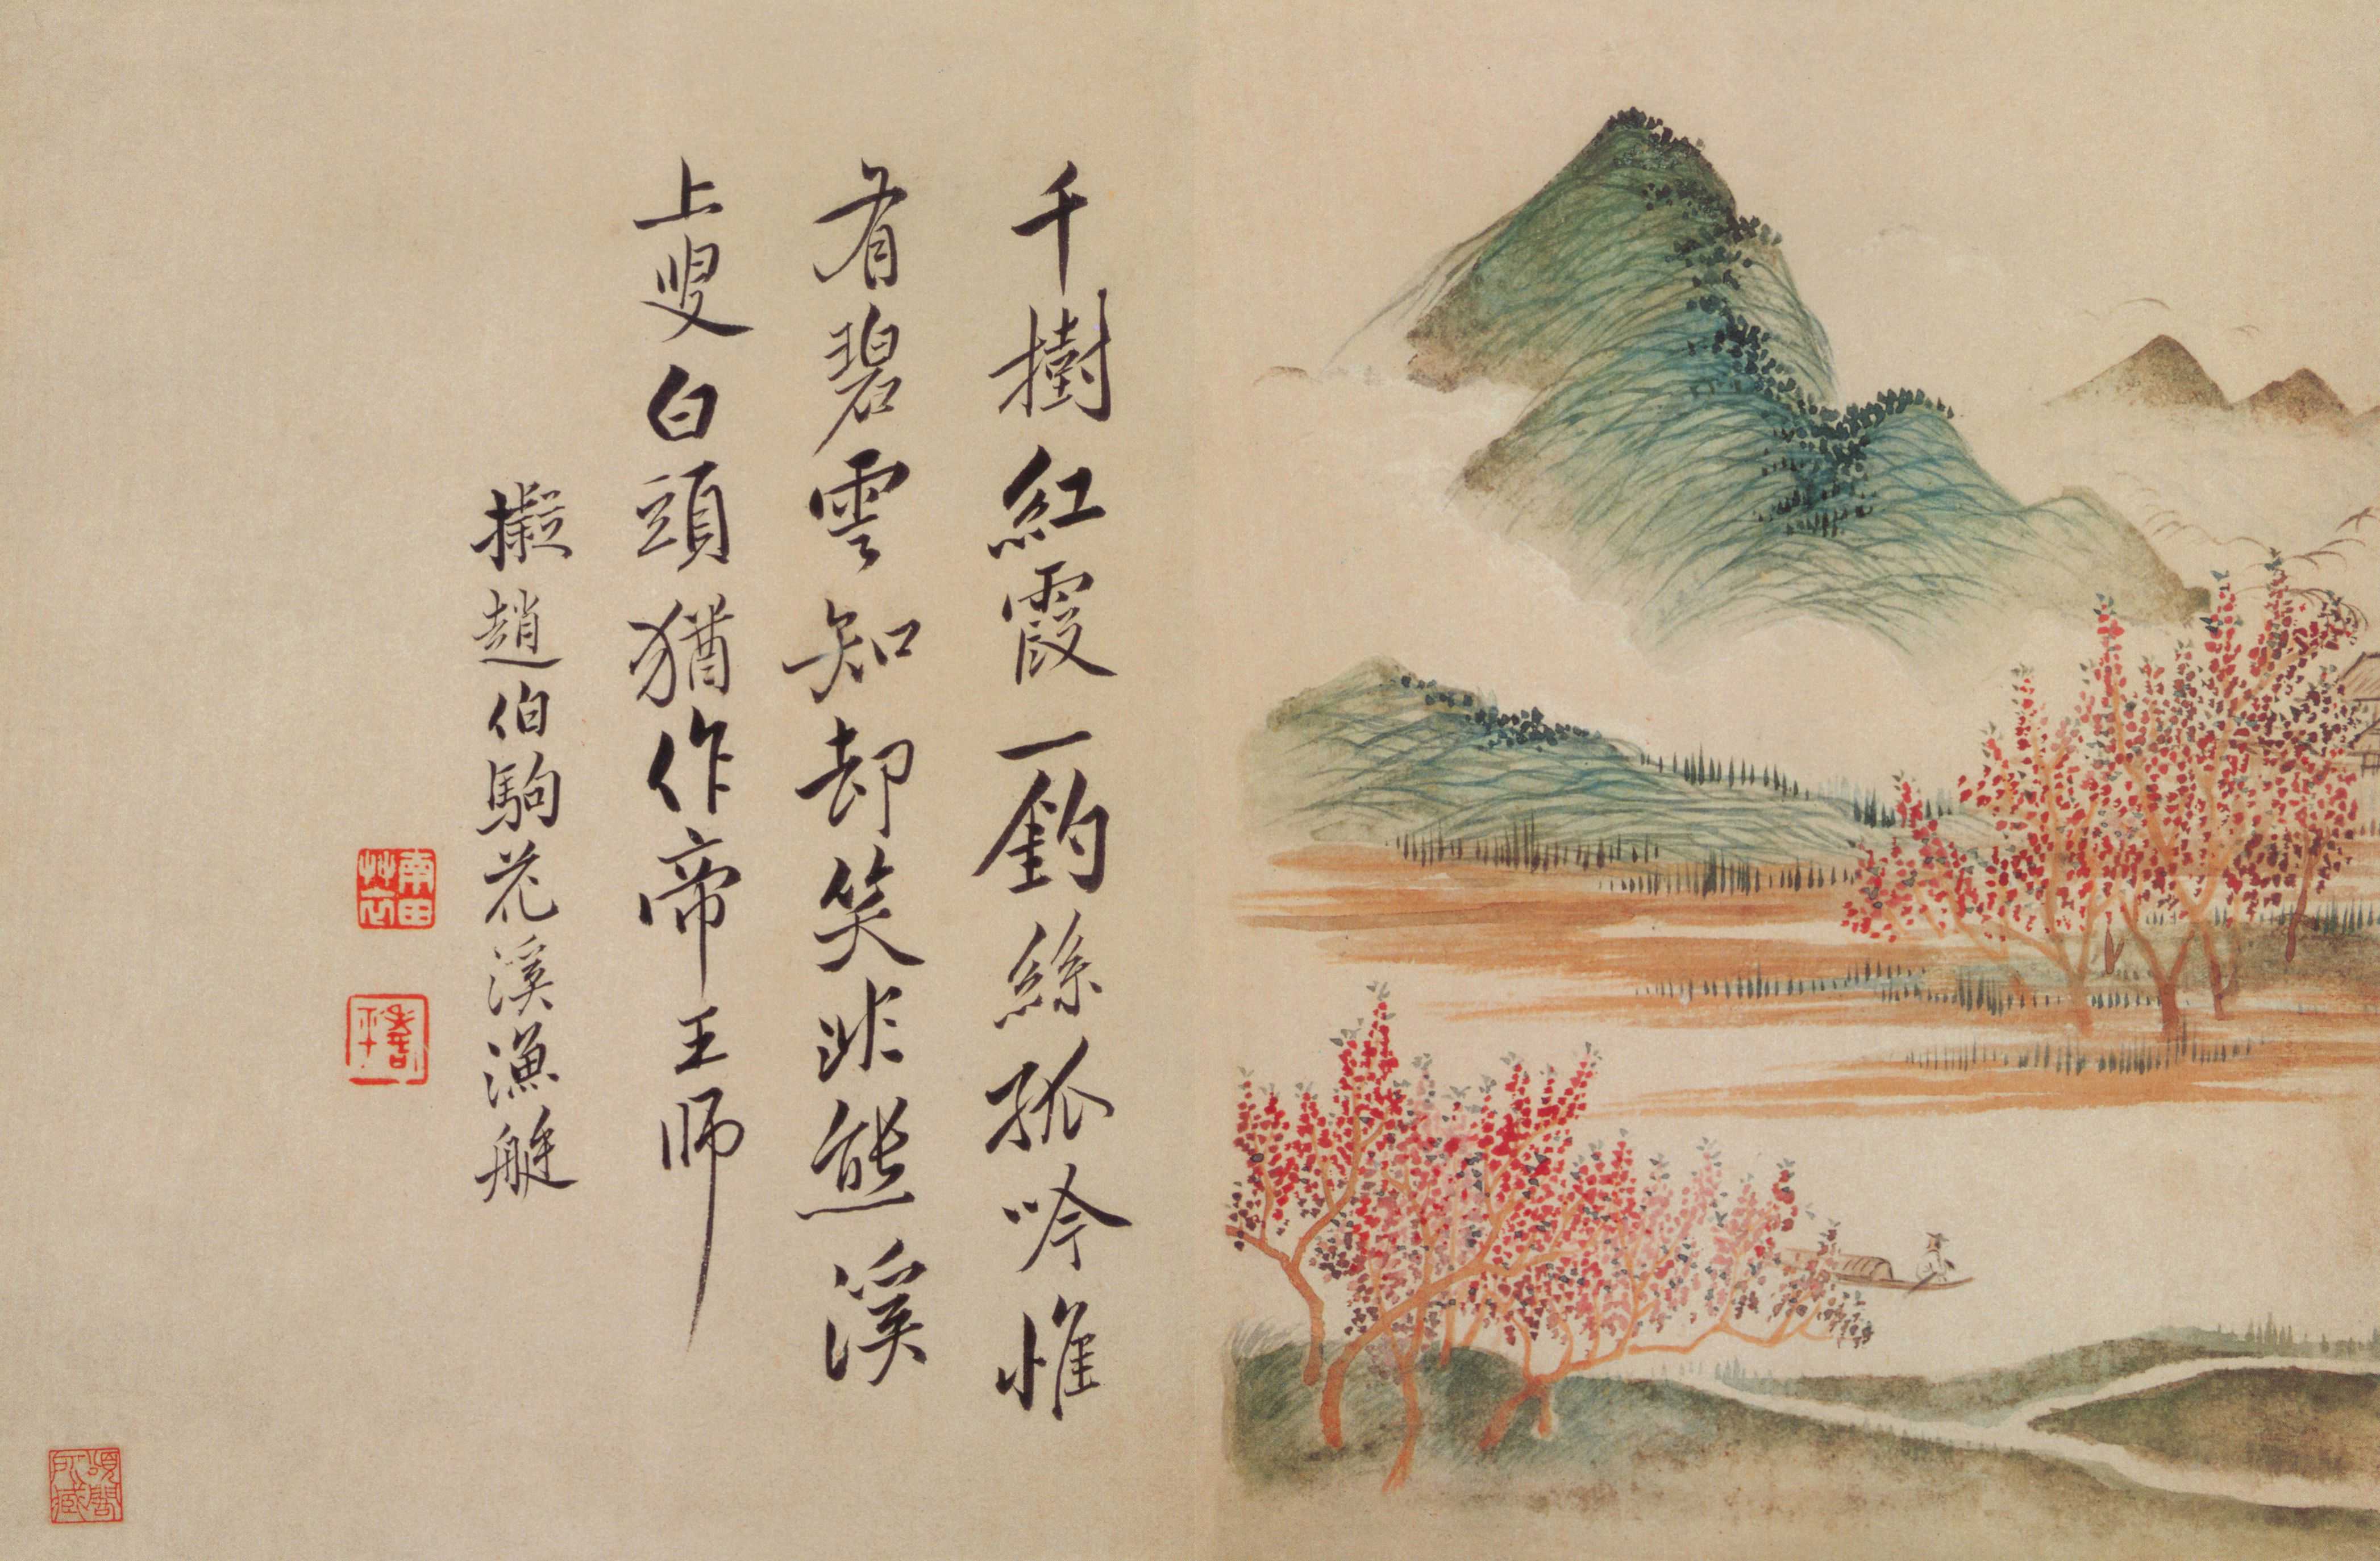 千樹紅霞一釣絲孤吟惟
有碧雲知却笑非熊溪
上叟白頭猶作帝王師
擬趙伯駒花溪漁艇
南田草衣
壽平
頌閣所藏